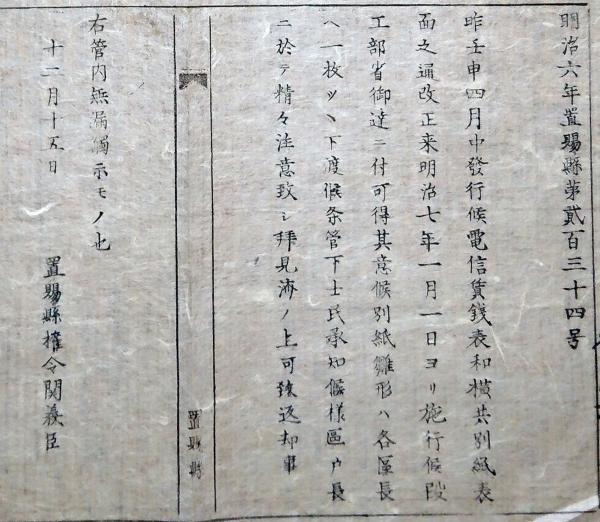 明治六年置賜縣第貳百三十四号
昨壬申四月中發行候電信賃錢表和横共別紙表
面之通改正来明治七年一月一日ヨリ施行候段
工部省御達ニ付可得其意候別紙雛形ハ各區長
ヘ一枚ツヽ下渡候条管下士民承知候様區戸長
ニ於テ精々注意致シ拝見済ノ上可致返却事
置賜縣
右管内無漏觸示モノ也
十二月十五日
置賜縣權令関義臣